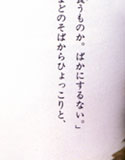 うものか。ばかにするない。」
などのそばからひょっこりと、